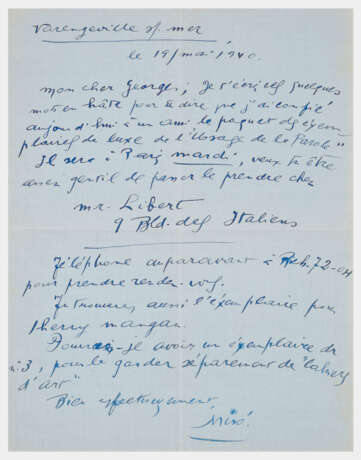 Varengeville s/ mer
le 19/mai/1940.
mon cher Georges; Je t'écris ces quelques
mots en hâte pour te dire que j'ai confié
aujourd'hui à un ami le paquet des exem-
plaires de luxe de l'Usage de la Parole"
Il sera à Paris mardi, veux tu être
assez gentil de passer le prendre chez
mr. Libert
9 Bld. des Italiens
Téléphone auparavant à Rich. 72-04
pour prendre rendez-vous.
Tu trouveras aussi l'exemplaire pour
Therry mangan.
Pourrais-je avoir un exemplaire du
n: 3, pour le garder séparement de "Cahiers
d'art"
Bien affectueusement
Miró.